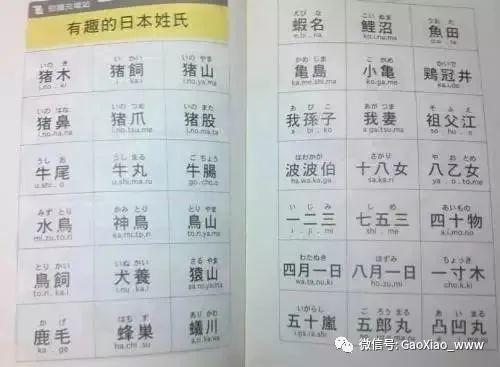 知識充電站
有趣的日本姓氏
いの き いかい いの やま
猪木 猪飼 猪山
i.no . ki i . kai i.no.ya.ma
いの はな いの つめ いの また
猪鼻 猪爪 猪股
i.no.ha.na i.no.tsu.me i.no.ma.ta
うし お うし まる ご ちょう
牛尾 牛丸 牛腸
u.shi.o u.shi.ma.ru go.cho.o
みず とり かみ とり とり やま
水鳥 神鳥 鳥山
mi.zu.to.ri ka.mi.to.ri to.ri.ya.ma
とり かい いぬ かい さる やま
鳥飼 犬養 猿山
to.ri.ka.i i.nu.ka.i sa.ru.ya.ma
か げ はち す あり かわ
鹿毛 蜂巣 蟻川
ka . ge ha.chi . su a.ri.ka.wa
えび な こい ぬま うお た
蝦名 鯉沼 魚田
e.bi . na ko.i.nu.ma u.o . ta
かめ しま お がめ かいで
亀島 小亀 鶏冠井
ka.me.shi.ma o.ga.me ka.i.de
あ び こ あが つま そ ふ え
我孫子 我妻 祖父江
a . bi . ko a.ga.tsu.ma so . fu . e
はわかが さかり や おとめ
波波伯 十八女 八乙女
ha.wa.ka.ga sa.ka.ri ya . o.to.me
い じ み し め あいもの
一二三 七五三 四十物
i . ji . mi shi . me a.i.mo.no
わたぬき ほずみ ちょっき
四月一日 八月一日 一寸木
wa.ta.nu.ki ho.zu.mi cho.k.ki
いがらし ごろう まる あいま
五十嵐 五郎丸 凸凹丸
i.ga.ra.shi
微信号: GaoXiao_www